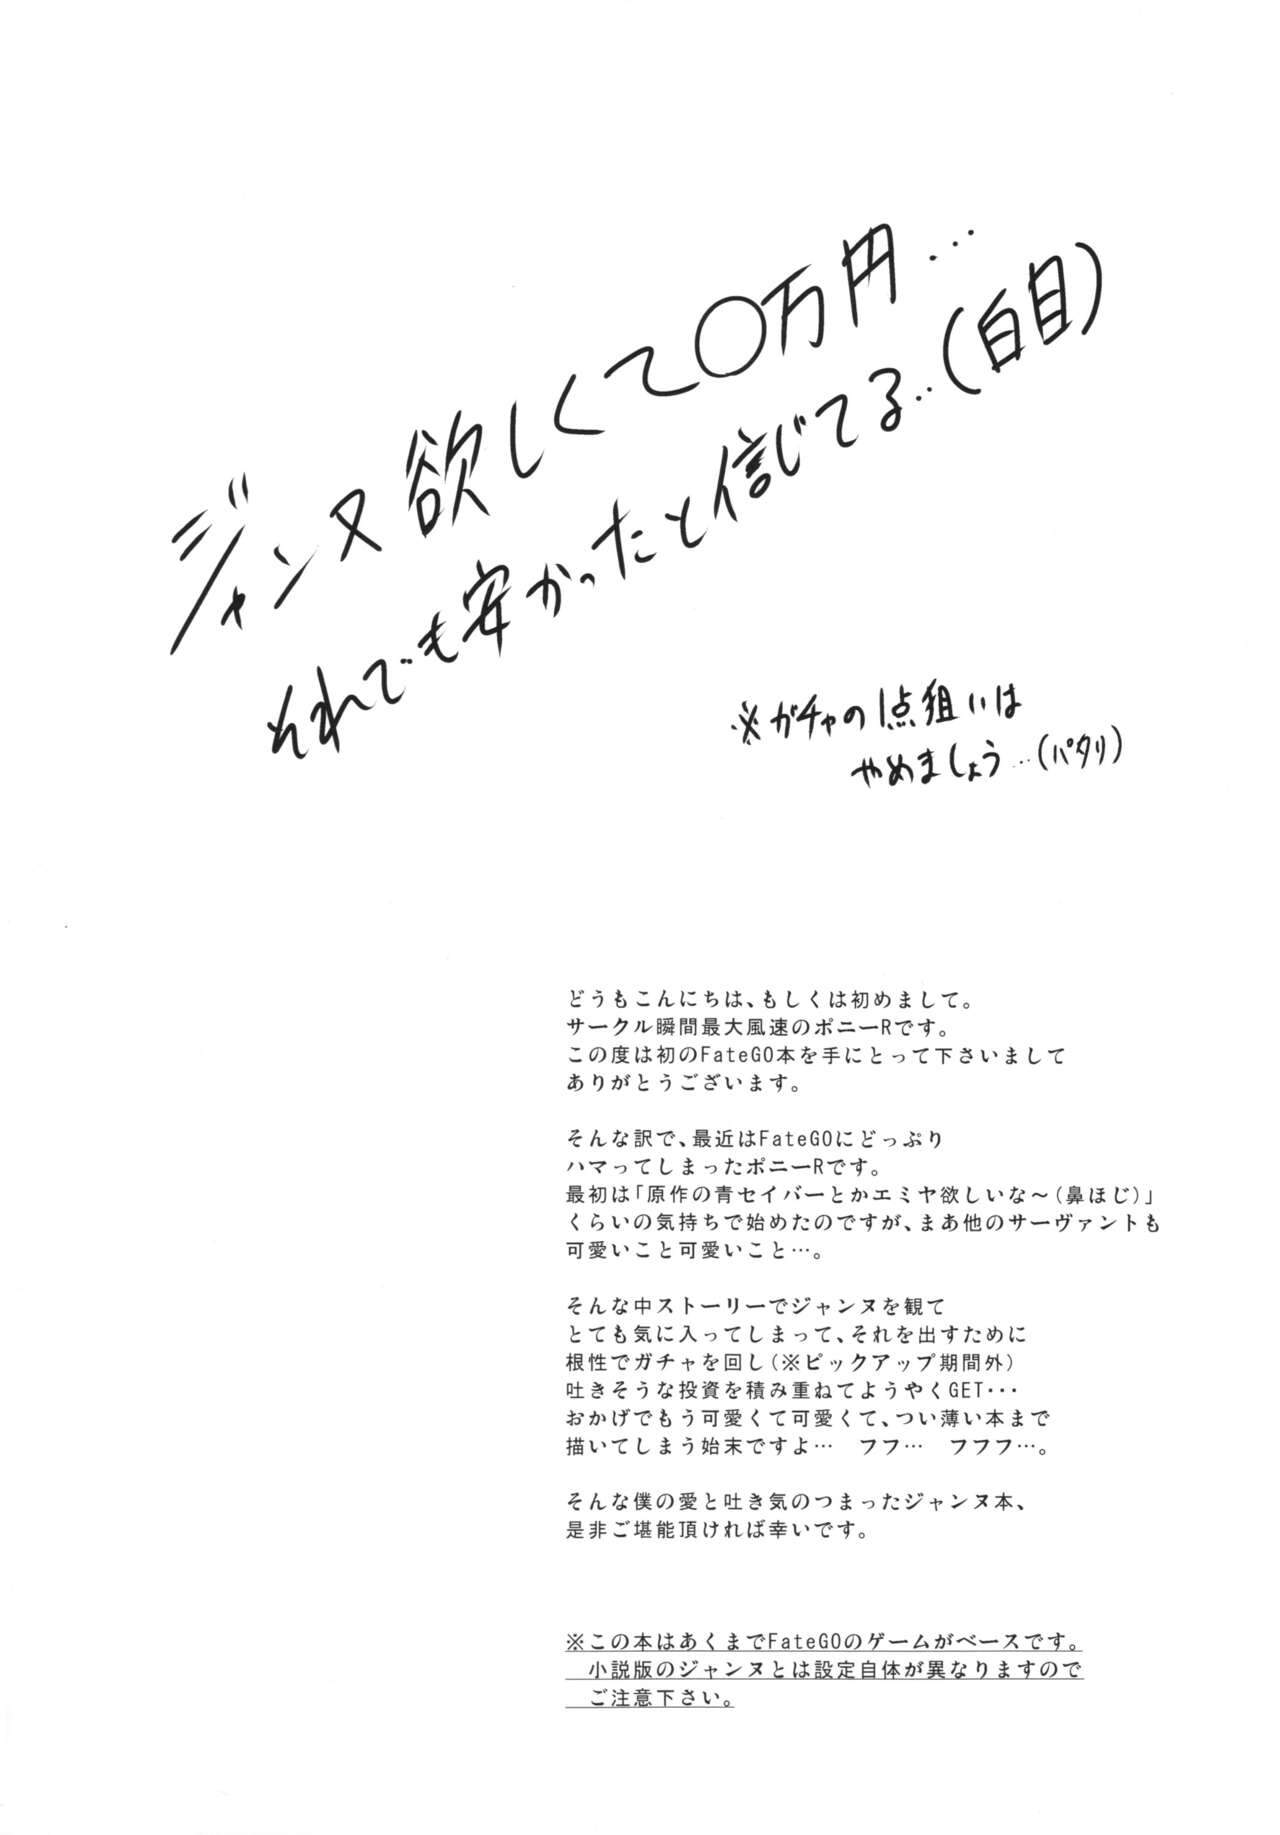 ジャンヌ欲しくて〇万円…
それでも安かったと信じてる…(白目)
※ガチャの1点狙いは
やめましょう…(パタリ)
どうもこんにちは、もしくは初めまして。
サークル瞬間最大風速のポニーRです。
この度は初のFateGO本を手にとって下さいまして
ありがとうございます。
そんな訳で、最近はFateGOにどっぷり
ハマってしまったポニーRです。
最初は「原作の青セイバーとかエミヤ欲しいな～(鼻ほじ)」
くらいの気持ちで始めたのですが、まあ他のサーヴァントも
可愛いこと可愛いこと…。
そんな中ストーリーでジャンヌを観て
とても気に入ってしまって、それを出すために
根性でガチャを回し(※ピックアップ期間外)
吐きそうな投資を積み重ねてようやくGET･･･
おかげでもう可愛くて可愛くて、つい薄い本まで
描いてしまう始末ですよ…　フフ…　フフフ…。
そんな僕の愛と吐き気のつまったジャンヌ本、
是非ご堪能頂ければ幸いです。
※この本はあくまでFateGOのゲームがベースです。
小説版のジャンヌとは設定自体が異なりますので
ご注意下さい。